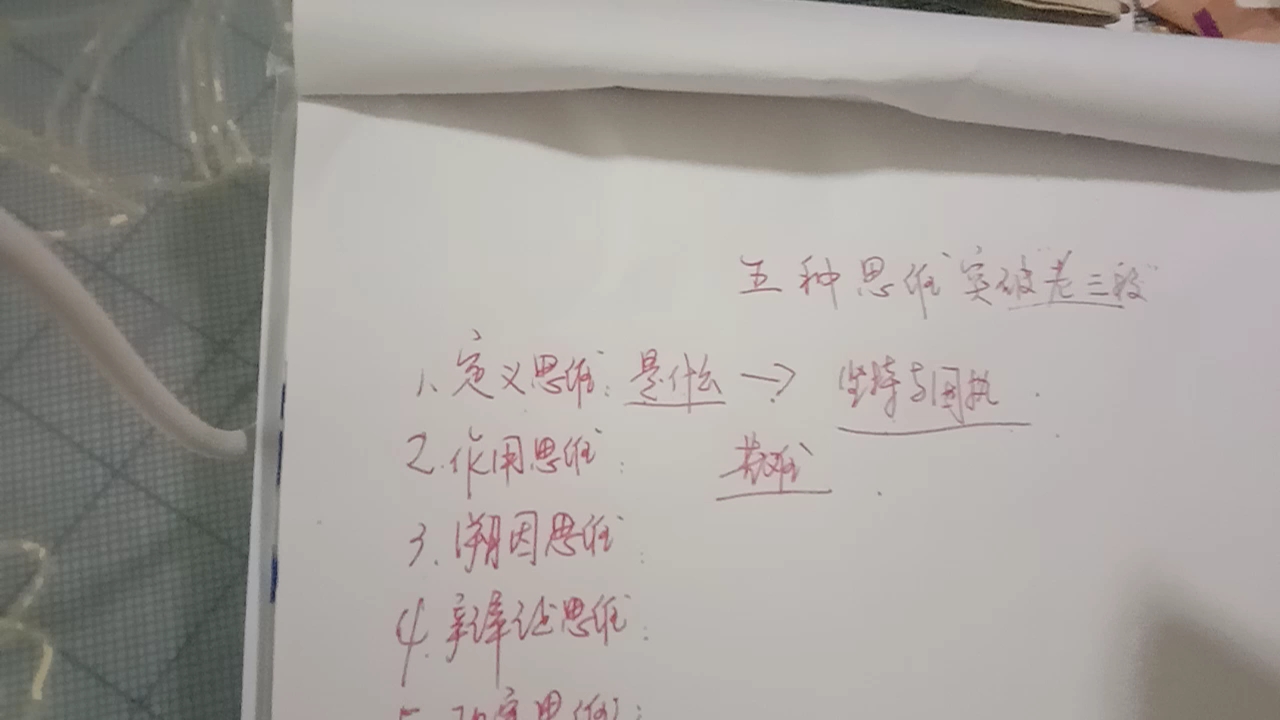 五种思维突破"老三段"
1、定义思维：是什么→坚持与固执.
2.作用思维：苦难.
3.溯因思维：
4.辩证思维：
5.现实思维：